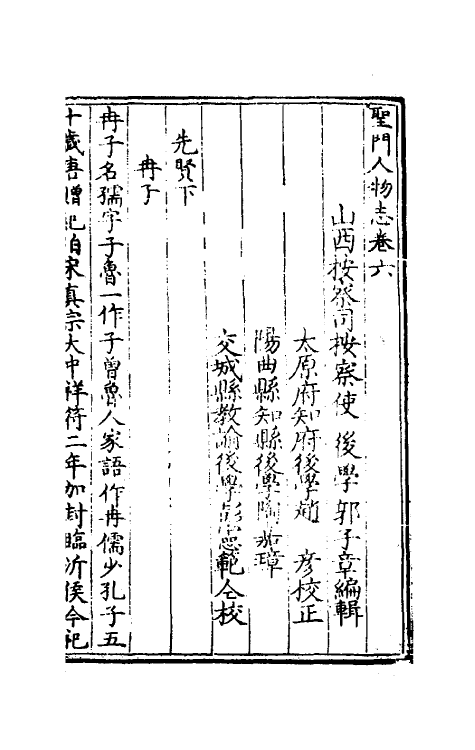 聖門人物志卷六
山西按察司按察使 後學郭子章編輯
太原府知府後學趙 彥校正
陽曲縣知縣後學陶嘉璋
交城縣教諭後學彭憲範仝校
先賢下
冉子
冉子名孺字子魯一作子曾魯人家語作冉儒少孔子五
十歲唐贈紀伯宋真宗大中祥符二年加封臨沂侯今祀